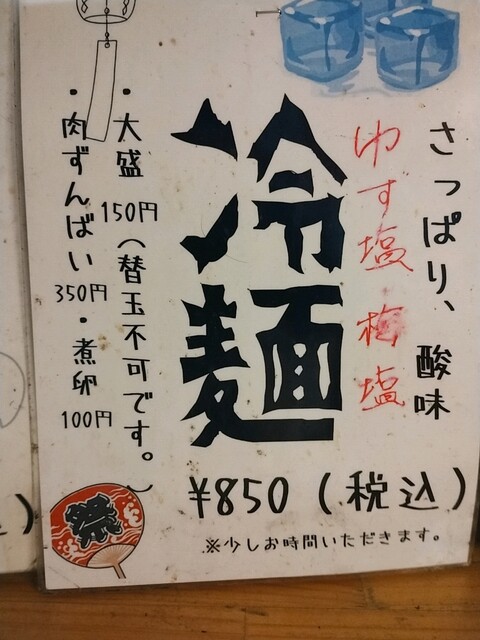 さっぱり、酸味
ゆず塩 梅塩
冷麺
・大盛 150円（替玉不可です。）
・肉ずんばい 350円・煮卵 100円
¥850（税込）
※少しお時間いただきます。
祭